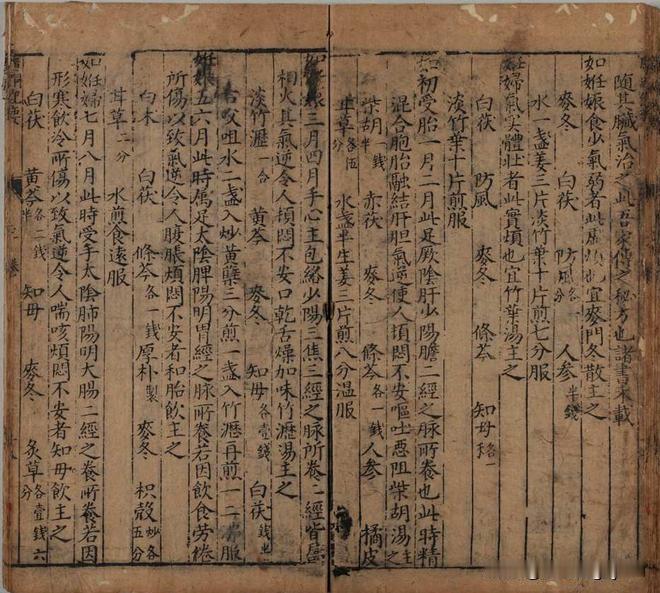 随其臟氣治之此吾家傳之秘方也諸書未載
如姙娠食少氣弱者此虛煩也宜麥門冬散主之
麥冬 白茯 防風各一分 人参半錢
水一盏姜三片淡竹葉十片煎七分服
妊婦氣实體壮者此實煩也宜竹葉湯主之
白茯 防風 麥冬 條芩 知母各一
淡竹葉十片煎服
如初受胎一月二月此足厥陰肝少陽膽二經之脉所養也此時精
混合胞胎融結肝胆氣逆使人煩悶不安嘔吐惡阻柴胡湯主之
柴胡半錢 赤茯 麥冬 條芩各一錢 人参 橘皮
甘草各五分 水盏半生姜三片煎八分温服
三月四月手心主包絡少陽三焦三經之脉所養二經皆
相火其氣逆令人煩悶不安口乾舌燥加味竹瀝湯主之
淡竹瀝一合 黄芩 麥冬 知母各壹錢 白茯錢
右㕮咀水二盏入炒黄蘗三分煎一盏入竹瀝再煎一二沸服
姙娠五六月此時属足太陰脾陽明胃經之脉所養若因飲食劳倦
所傷以致氣逆令人腹脹煩悶不安者和胎飲主之
白术 白茯 條芩各一錢 厚朴製 麥冬 枳殼炒各五分
甘草二分 水煎食遠服
如姙婦七月八月此時受手太陰肺陽明大腸二經之養所養若因
形寒飲冷所傷以致氣逆令人喘咳煩悶不安者知母飲主之
白茯 黄芩各二錢半 知母 麥冬 炙草各壹錢六分